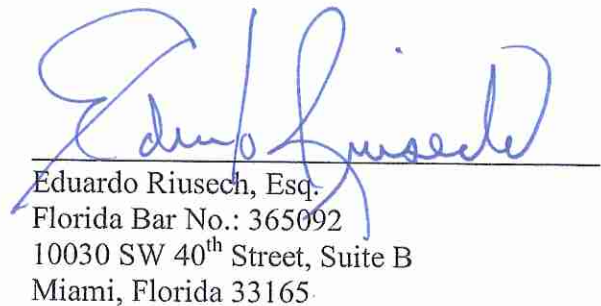 Eduardo Riusech
Eduardo Riusech, Esq.
Florida Bar No.: 365092
10030 SW 40th Street, Suite B
Miami, Florida 33165